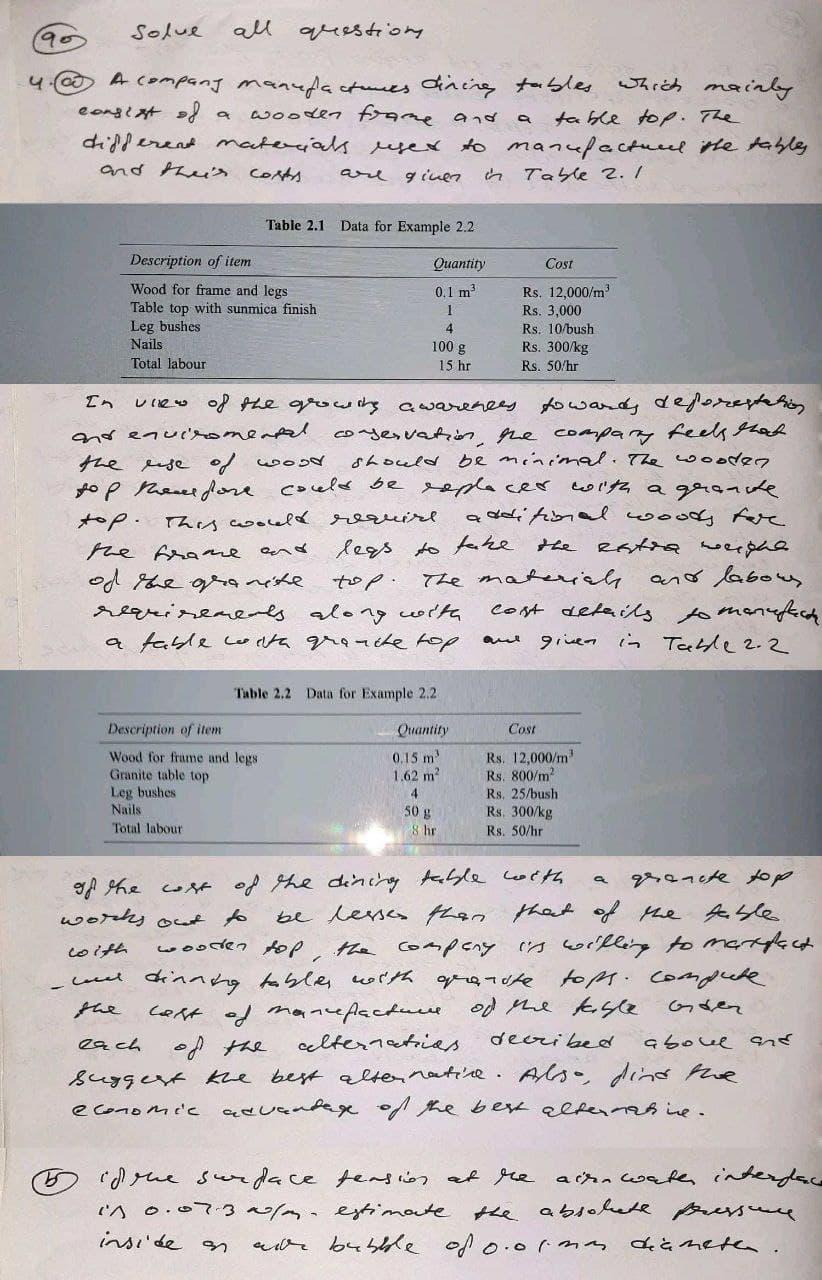 Solve all questions
4.(a) A company manufactures dining tables which mainly
consist of a wooden frame and a table top. The
different materials used to manufacture the tables
and their costs are given in Table 2.1
Table 2.1 Data for Example 2.2
Description of item Quantity Cost
Wood for frame and legs 0.1 m³ Rs. 12,000/m³
Table top with sunmica finish 1 Rs. 3,000
Leg bushes 4 Rs. 10/bush
Nails 100 g Rs. 300/kg
Total labour 15 hr Rs. 50/hr
In view of the growing awareness towards deforestation
and enviromental conservation, the company feels that
the use of wood should be minimal. The wooden
top therefore could be replaced with a granite
top. This would require additional woods for
the frame and legs to take the extra weight
of the granite top. The materials and labour
requirements along with cost details to manufact
a table with granite top are given in Table 2.2
Table 2.2 Data for Example 2.2
Description of item Quantity Cost
Wood for frame and legs 0.15 m³ Rs. 12,000/m³
Granite table top 1.62 m² Rs. 800/m²
Leg bushes 4 Rs. 25/bush
Nails 50 g Rs. 300/kg
Total labour 8 hr Rs. 50/hr
If the cost of the dining table with a granite top
works out to be lesser than that of the table
with wooden top, the company is willing to manufact
-ure dinning tables with granite tops. Compute
the cost of manufacture of the table under
each of the alternatives described above and
Suggest the best alternative. Also, find the
economic advantage of the best alternative.
(b) if the surface tension at the air-water interface
is 0.073 N/m. estimate the absolute pressure
inside an air bubble of 0.01 mm diameter.